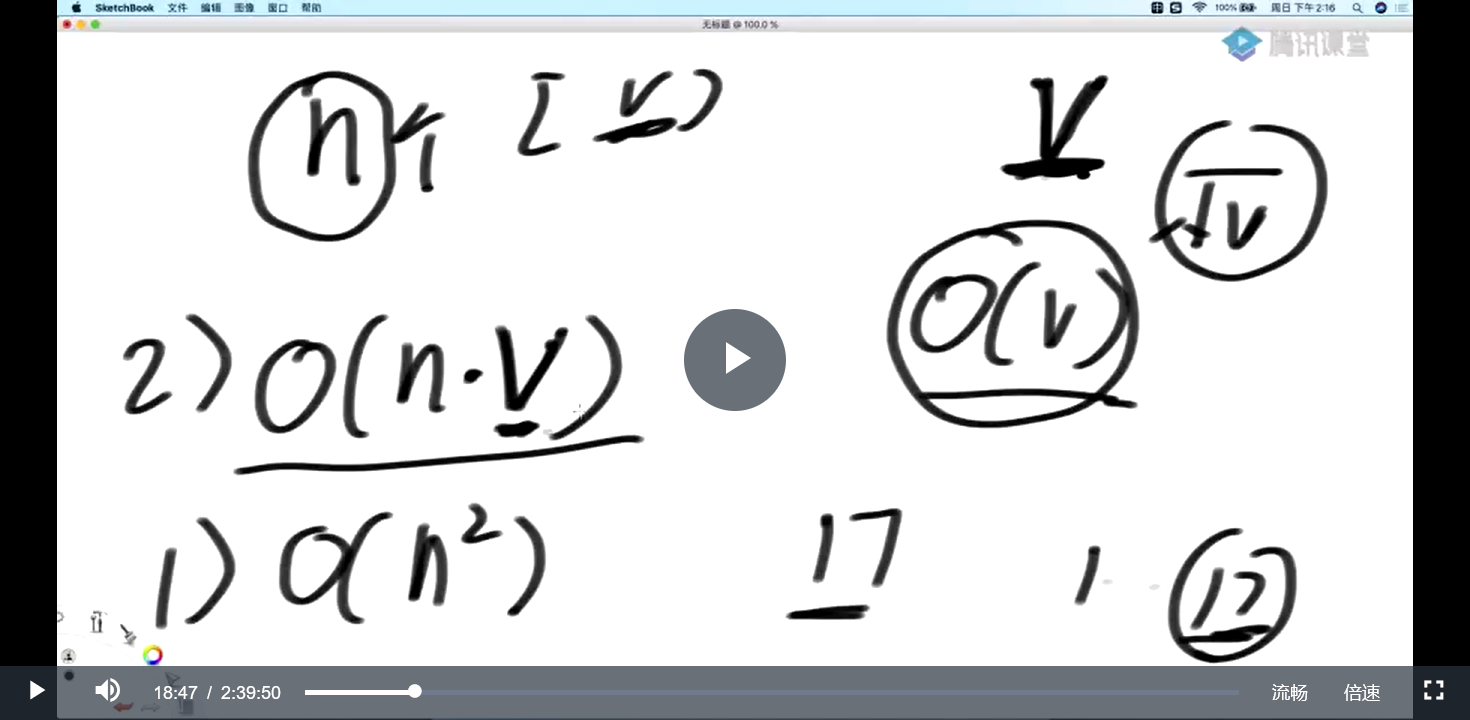 SketchBook 文件 编辑 图像 窗口 帮助 100% 周日 下午 2:16
无标题 @ 100.0 %
腾讯课堂
n个 [ v )
V
√v
O(v)
2) O(n·V)
1) O(n²)
17
1 17
18:47 / 2:39:50 流畅 倍速